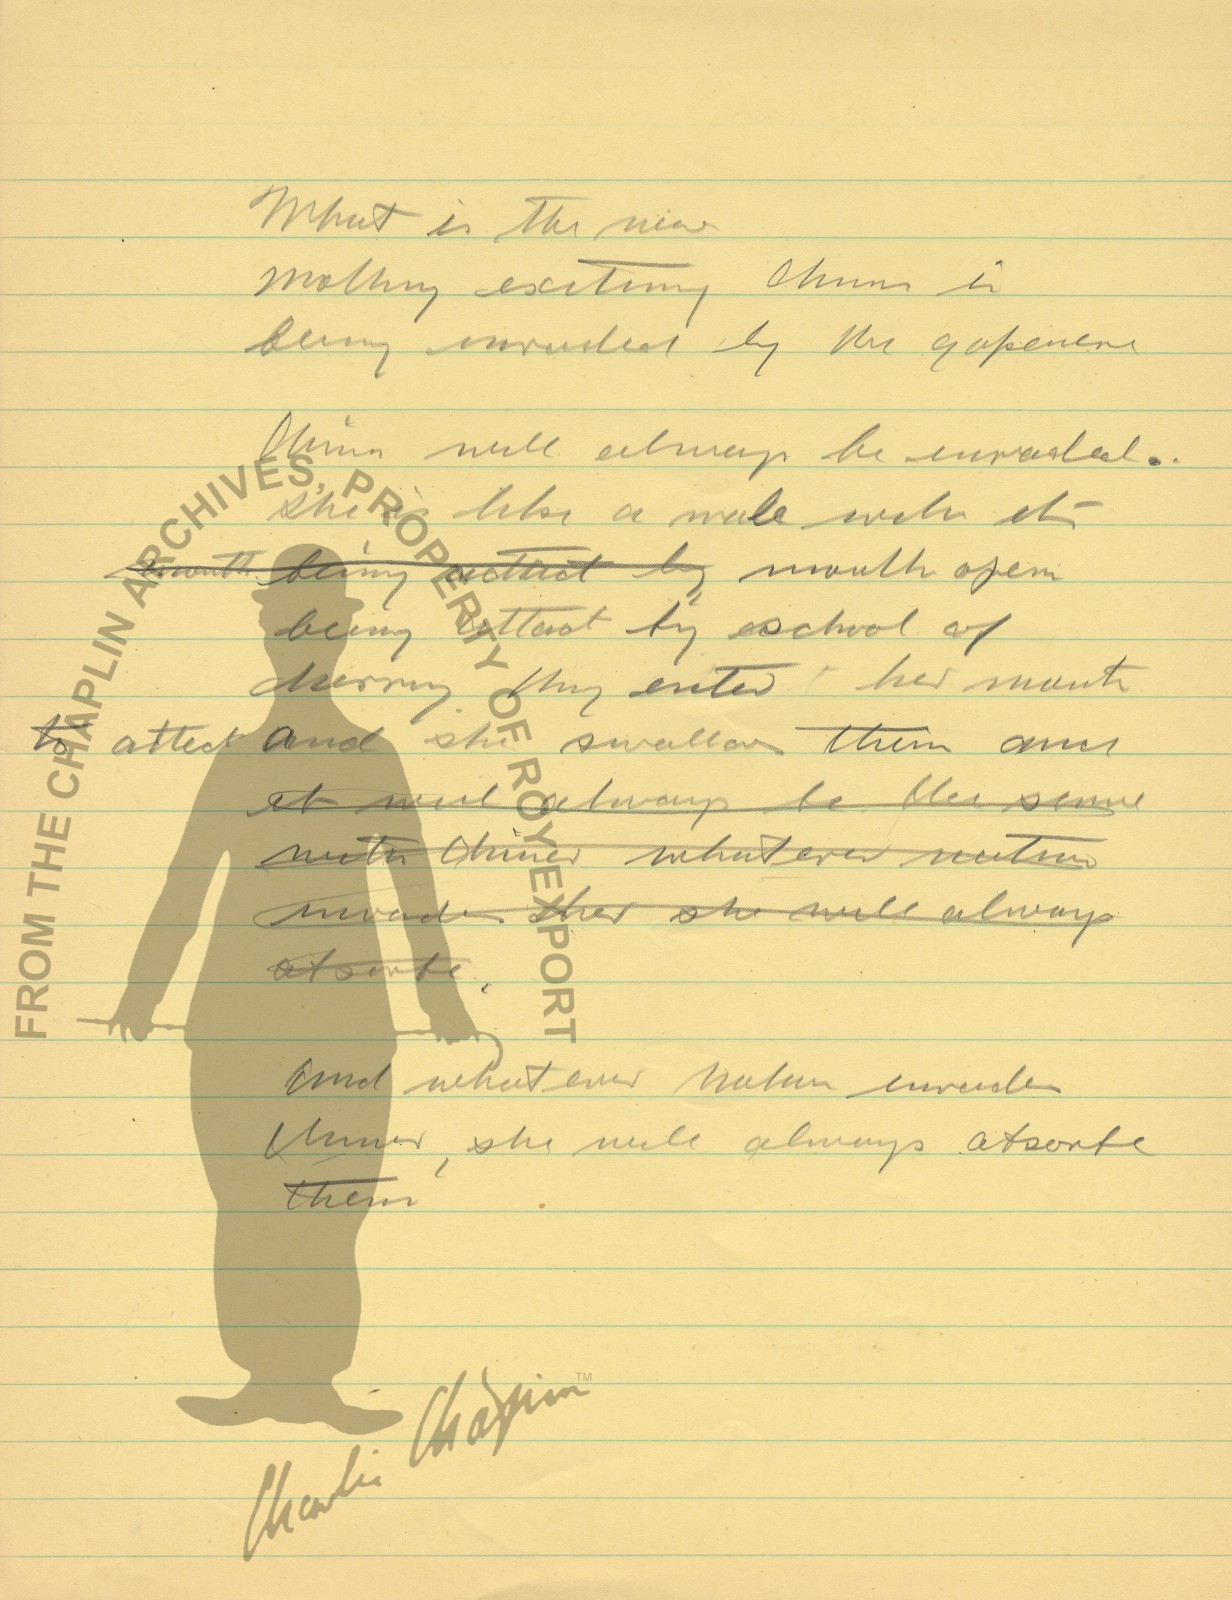 What is the new
Nothing exciting China is
being invaded by the gapenese
China will always be invaded.
She is like a wale with its
mouth being attact by mouth open
being attact by a school of
herring they enter her mouth
to attect and she swallow them and
it will always be the same
with China whatever nation
invades her she will always
absorbe.
And whatever nation invades
China, she will always absorbe
them
FROM THE CHAPLIN ARCHIVES, PROPERTY OF ROY EXPORT
Charlie Chaplin TM